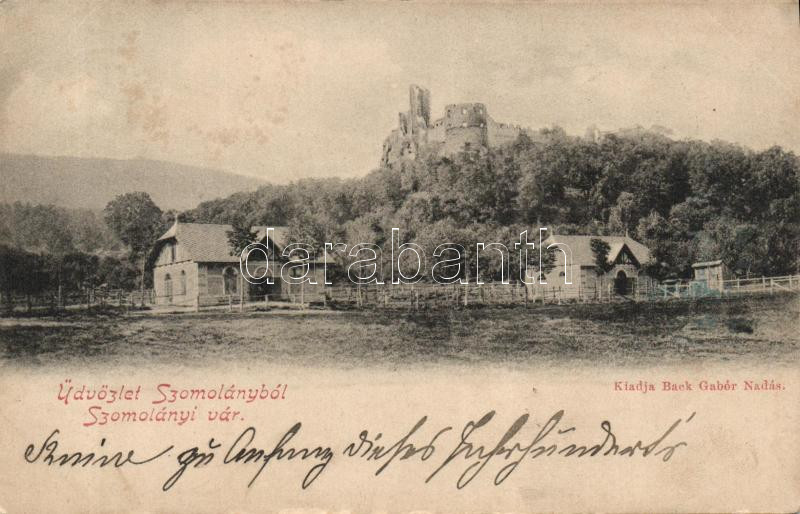 darabanth
Üdvözlet Szomolányból
Szomolányi vár.
Kiadja Back Gabór Nadás.
Ruine zu Anfang dieses Jahrhundert's